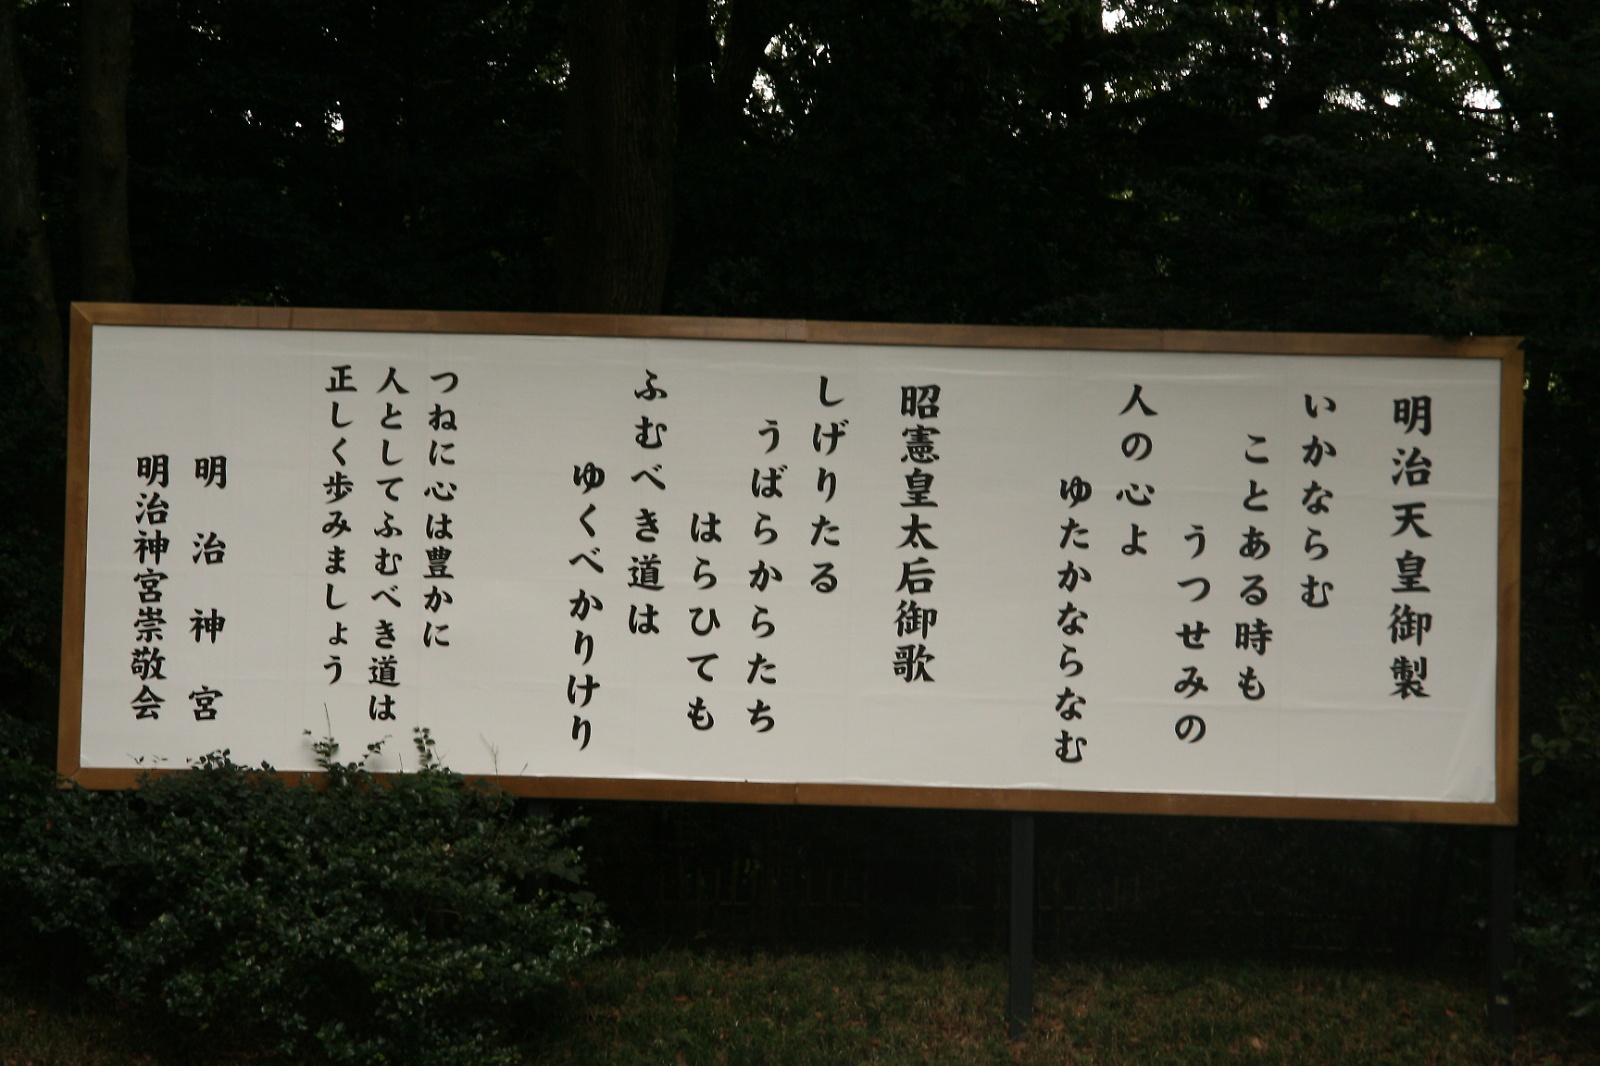 明治天皇御製
いかならむ
ことある時も
うつせみの
人の心よ
ゆたかならなむ
昭憲皇太后御歌
しげりたる
うばらからたち
はらひても
ふむべき道は
ゆくべかりけり
つねに心は豊かに
人としてふむべき道は
正しく歩みましょう
明治神宮
明治神宮崇敬会